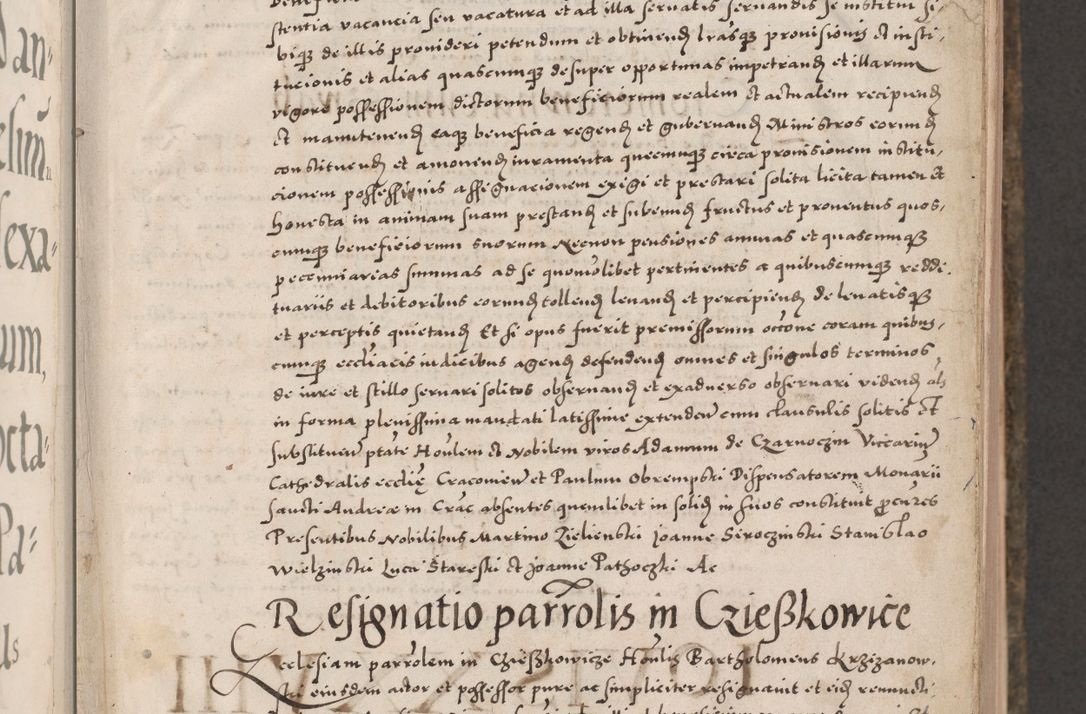 stentia vacancia seu vacatura et ad illa servatis servandis se institui si-
biq3 de illis provideri petendum et obtinend lrasq3 provisionis et insti-
tucionis et alias quascumq3 desuper opportunas impetrand et illarum
vigore possessionem dictorum beneficiorum realem et actualem recipiend
et manutenend eaq3 beneficia regend et gubernand Ministros eorund
constituend et amovend iuramenta quecumq3 circa provisionem institu-
cionem possessionis assignacionem exigi et prestari solita licita tamen et
honesta in animam suam prestand et subeund fructus et proventus quos-
cumq3 beneficiorum suorum Necnon pensiones annuas et quascumq3
pecuniarias summas ad se quomolibet pertinentes a quibuscumq3 reddi-
tuariis et debitoribus eorund tollend levand et percipiend de levatisq3
et perceptis quietand Et si opus fuerit premissorum occone coram quibus-
cumq3 eccliacis iudicibus agend defendend omnes et singulos terminos
de iure et stillo servari solitos observand et exadverso observari vidend als
in forma plenissima mandati latissime extenden cum clausulis solitis et
substituen ptate Honlem et Nobilem viros Adamum de Czarnoczin Viccarium
Cathedralis ecclię Cracovien et Paulum Obrempski Dispensatorem Monarii
sancti Andreæ in Crac absentes quemlibet in solid in suos constituit procures
Presentibus Nobilibus Martino Zielienski Joanne Siroczinski Stanislao
Wielzinski Luca Stareski et Joanne Pathoczki Ac
Resignatio parrolis in Czießkowice
Ecclesiam parrolem in Czießkowicze Honlis Bartholomeus Krzizanow-
ski eiusdem actor et possessor pure ac simpliciter resignavit et eid renuncti-